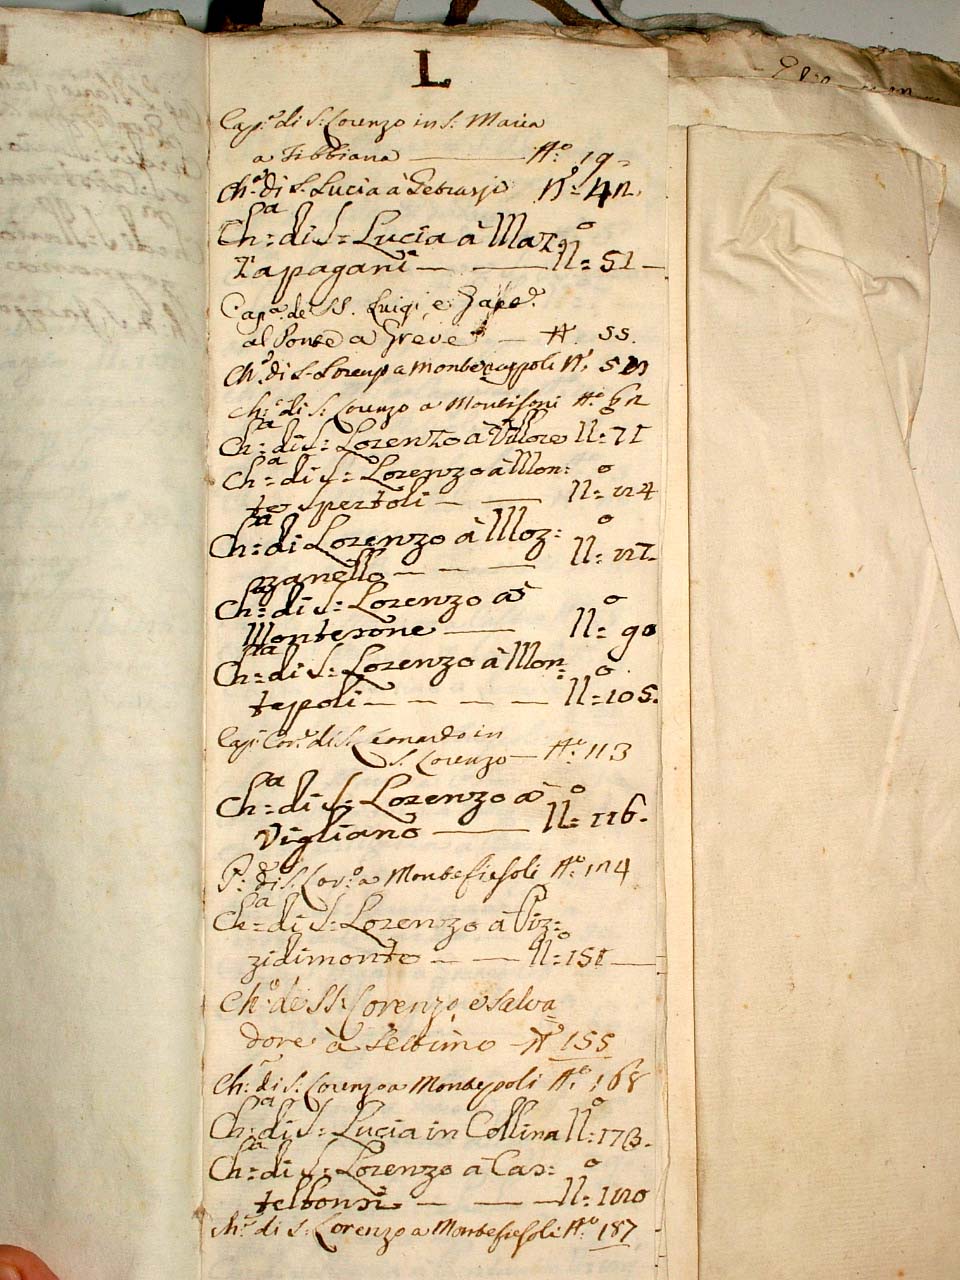 L
Cap.ª di S: Lorenzo in S: Maria
a Fibbiana — N.º 19 -
Ch.ª di S. Lucia à N.º 42.
Ch:ª di S: Lucia à Maz
zapagani — — N:º 51 —
Cap.ª de SS. Luigi, e
al Ponte a Greve — N. 55.
Ch.ª di S. Lorenzo a Montegappoli N.º
Ch.ª di S: Lorenzo a Montisoni N.º 62
Ch:ª di S: Lorenzo à Villore N:º 71
Ch:ª di S: Lorenzo à Mon:
te spertoli — — N:º
Ch:ª di Lorenzo à Moz:
zanello — — — N:º
Ch:ª di S: Lorenzo à
Montesone — N:º 90
Ch:ª di S: Lorenzo à Mon:
tepoli — — — — N:º 105.
di S. Leonardo in
S. Lorenzo — N.º 113
Ch:ª di S: Lorenzo à
Vigliano — N:º 116.
P: di S: Lor.º a Montefiesoli N.º 124
Ch:ª di S: Lorenzo à Piz:
zidimonte — — N:º 151 —
Ch.ª de SS: Lorenzo, e Salva
dore à Settimo — N.º 155
Ch.ª di S. Lorenzo a Montepoli N.º 168
Ch:ª di S: Lucia in Collina N:º 173.
Ch:ª di S: Lorenzo à Cas:
telbonsi — — — N:º
Ch.ª di S: Lorenzo a Montefiesoli N.º 187